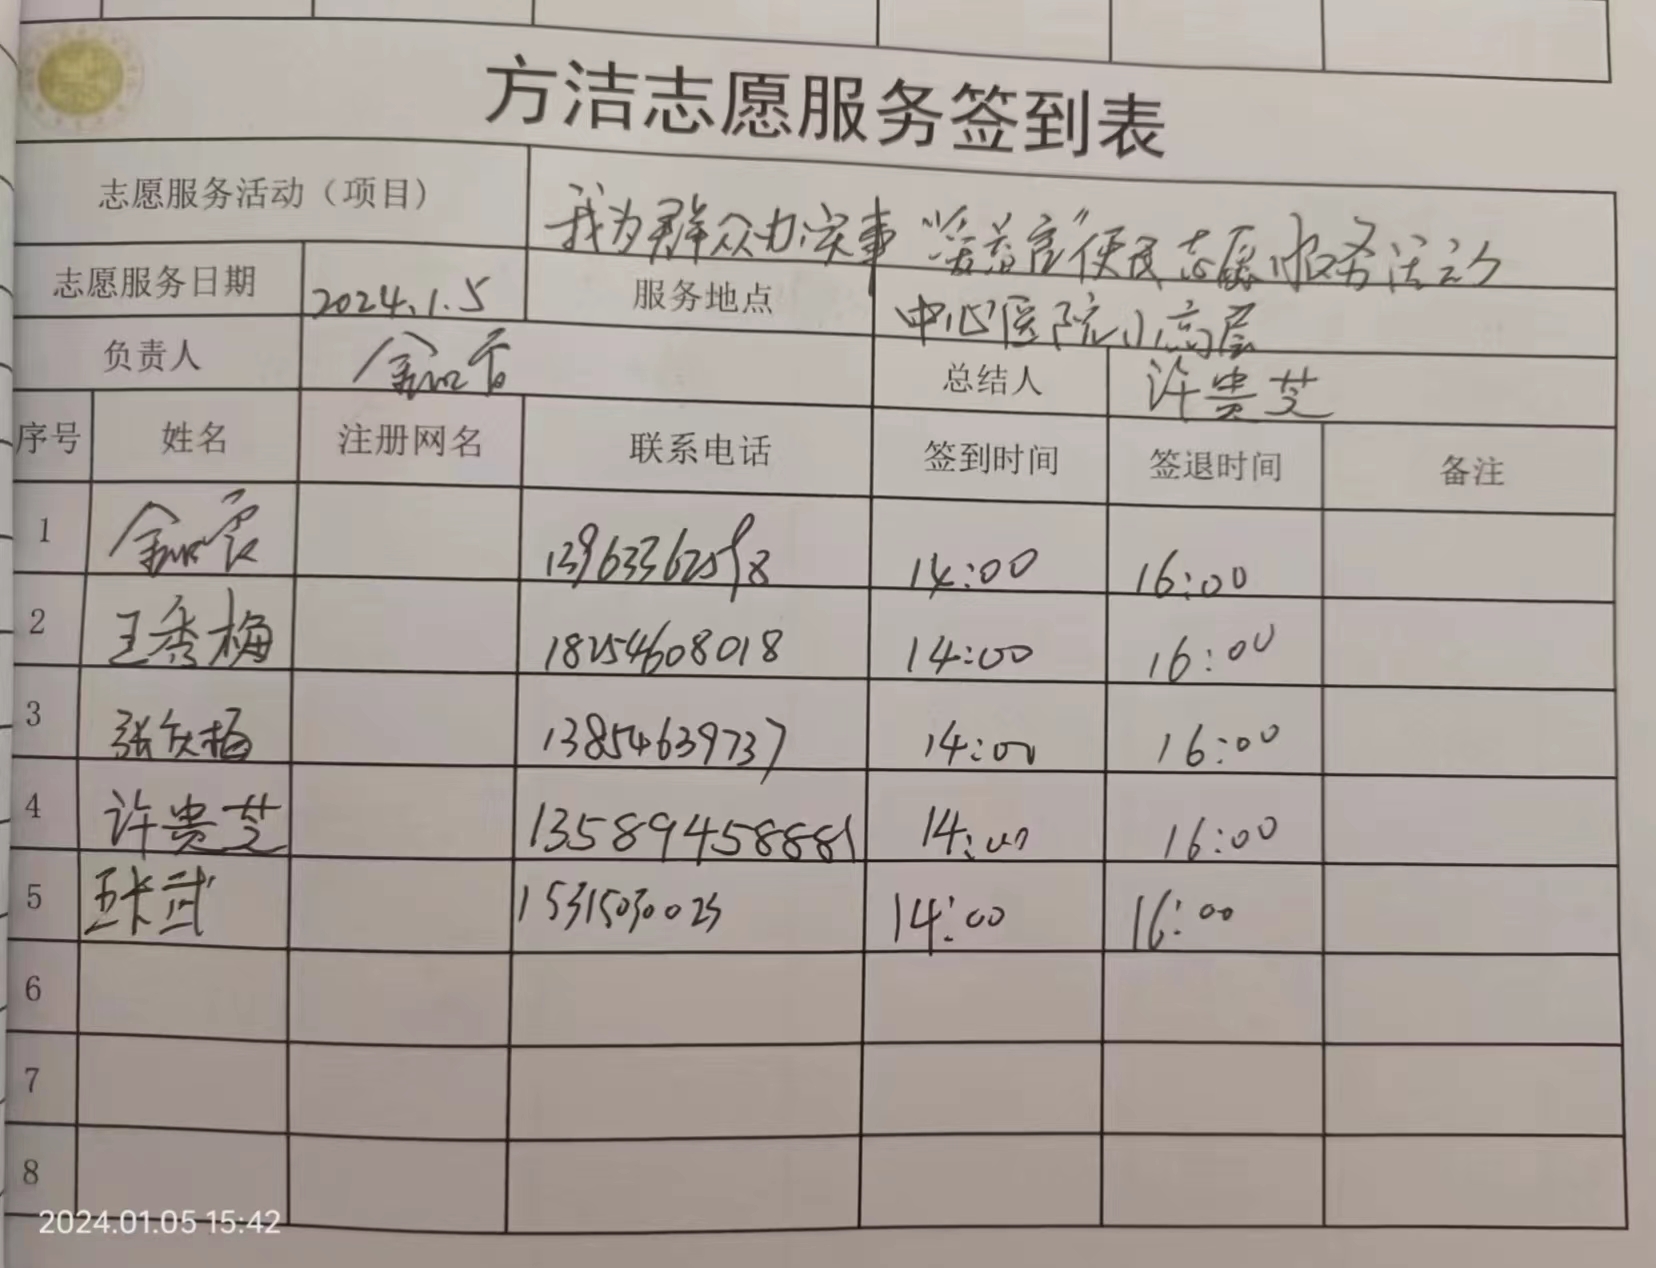 方洁志愿服务签到表
志愿服务活动（项目） 我为群众办实事 便民志愿服务活动
志愿服务日期 2024.1.5 服务地点 中心医院小高层
负责人 总结人 许贵芝
序号 姓名 注册网名 联系电话 签到时间 签退时间 备注
1 14:00 16:00
2 王秀梅 18254608018 14:00 16:00
3 13854639737 14:00 16:00
4 许贵芝 13589458881 14:00 16:00
5 15315030023 14:00 16:00
6
7
8
2024.01.05 15:42